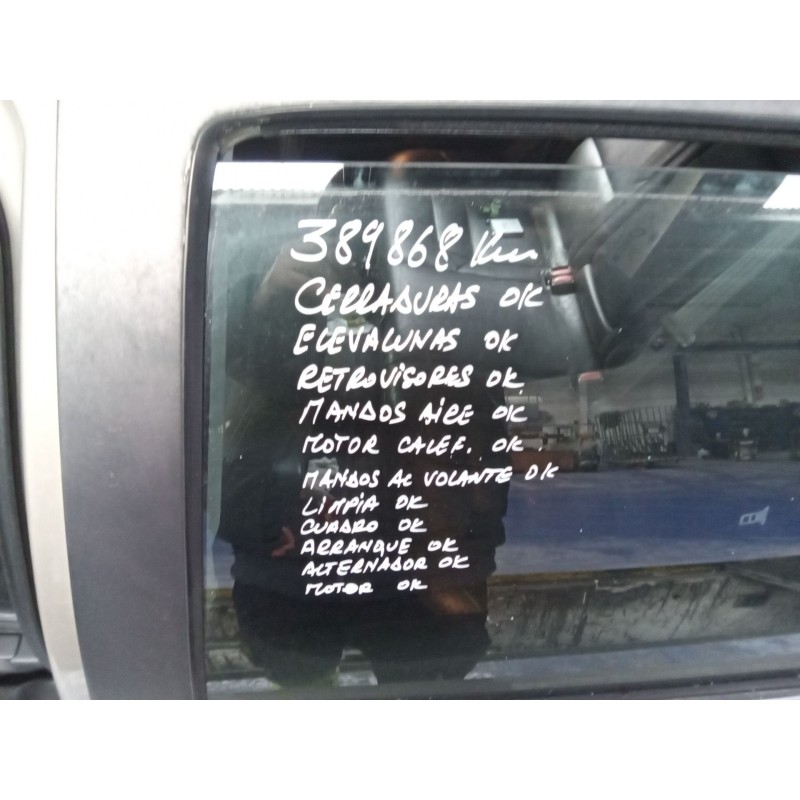 389868 Km
CERRADURAS OK
ELEVALUNAS OK
RETROVISORES OK
MANDOS AIRE OK
MOTOR CALEF. OK.
MANDOS AL VOLANTE OK
LIMPIA OK
CUADRO OK
ARRANQUE OK
ALTERNADOR OK
MOTOR OK